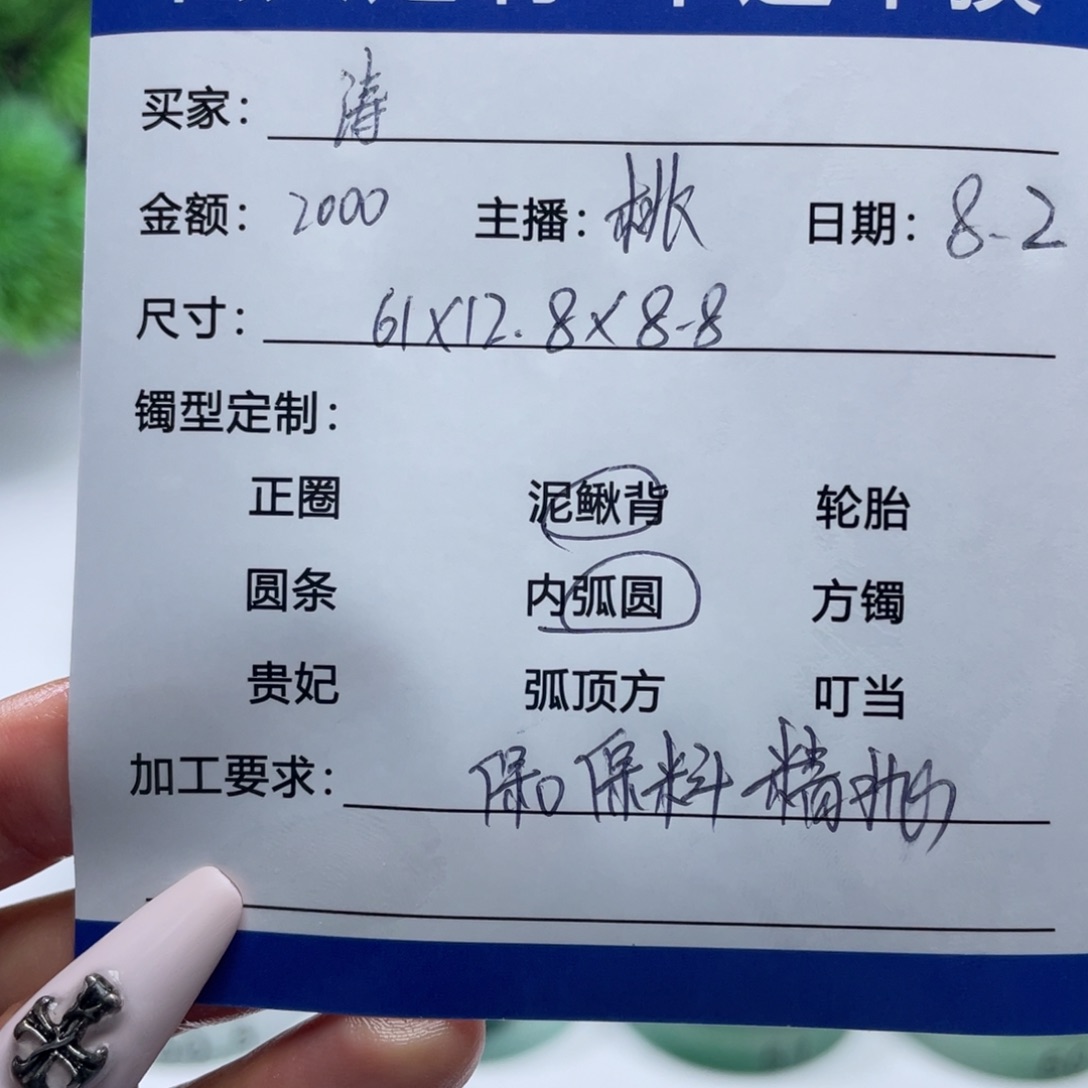 买家: 涛
金额: 2000 主播: 桃 日期: 8-2
尺寸: 61×12.8×8-8
镯型定制:
正圈 泥鳅背 轮胎
圆条 内弧圆 方镯
贵妃 弧顶方 叮当
加工要求: 保口 保料 精抛